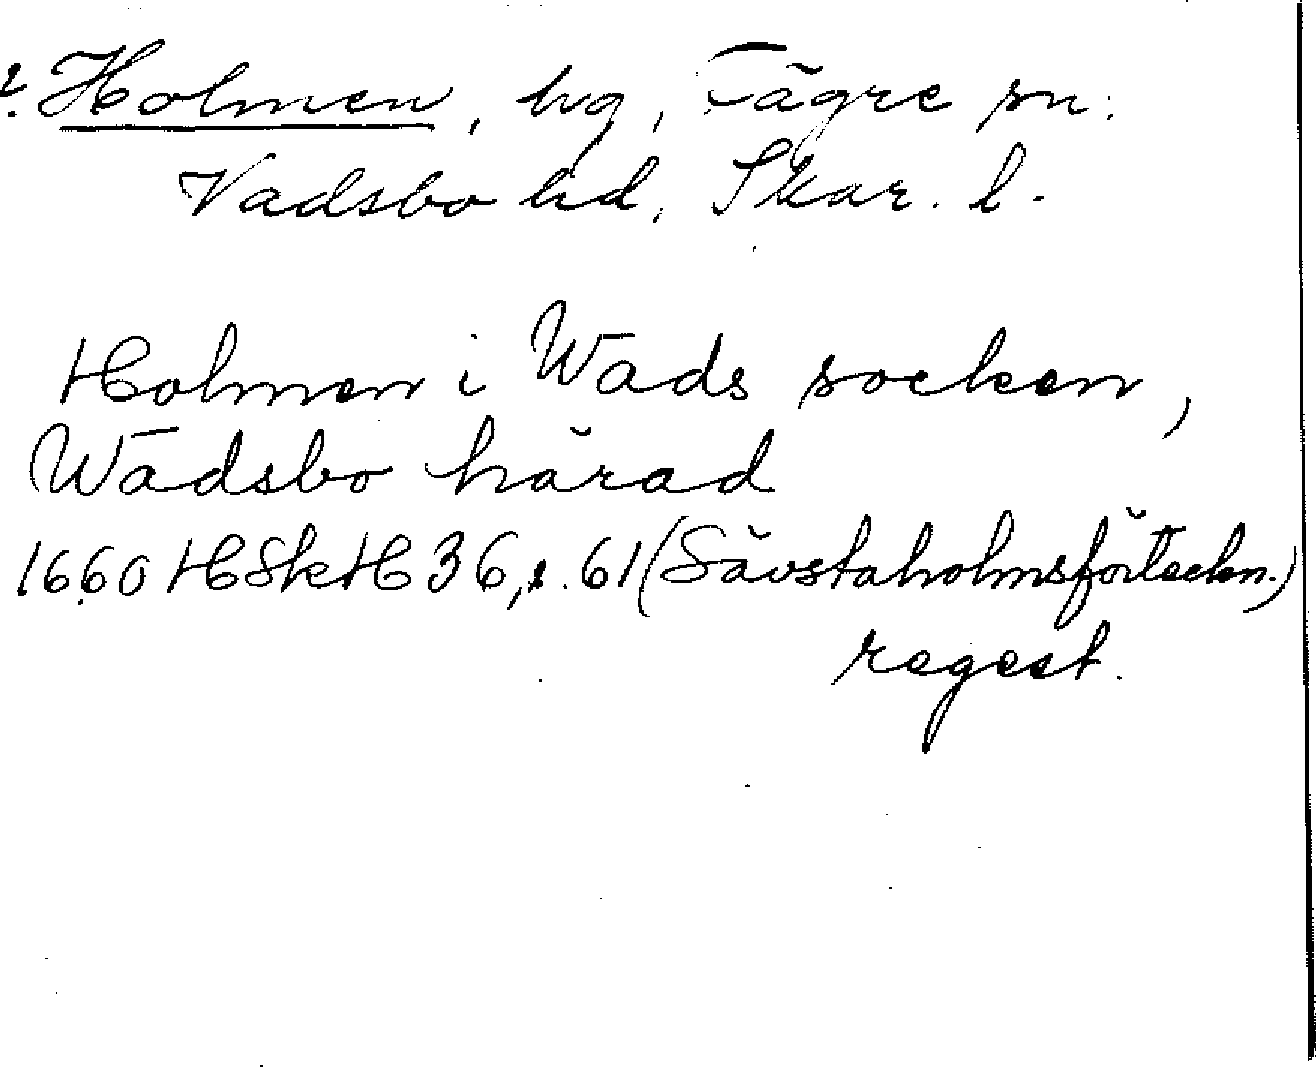 ?. Holmen, hg, Fägre sn.
Vadsbo hd, Skar. l.
Holmen i Wads socken,
Wadsbo härad
1660 HSkH 36, s. 61 (Sävstaholmsförteckn.)
regest.